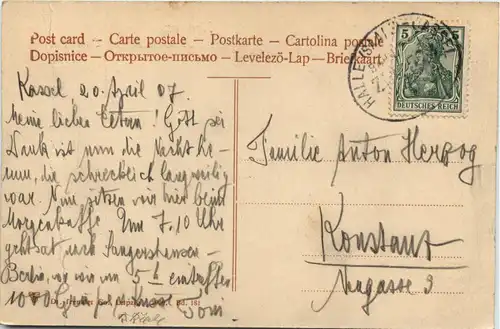 Post card - Carte postale - Postkarte - Cartolina postale
Dopisnice - Открытое-письмо - Levelező-Lap - Briefkaart
5 5
DEUTSCHES REICH
HALLE (SAALE) CASSEL
Kassel 20. April 07.
Meine lieben Eltern! Gott sei
Dank ist nun die Nacht he-
rum, die schrecklich langweilig
war. Nun sitzen wir hier beim
Morgenkaffe Um 7.10 Uhr
geht es nach Sangershausen -
Berlin, wo wir um 5 h eintreffen
1000 Grüsse
Familie Anton Herzog
Konstanz
Neugasse 9